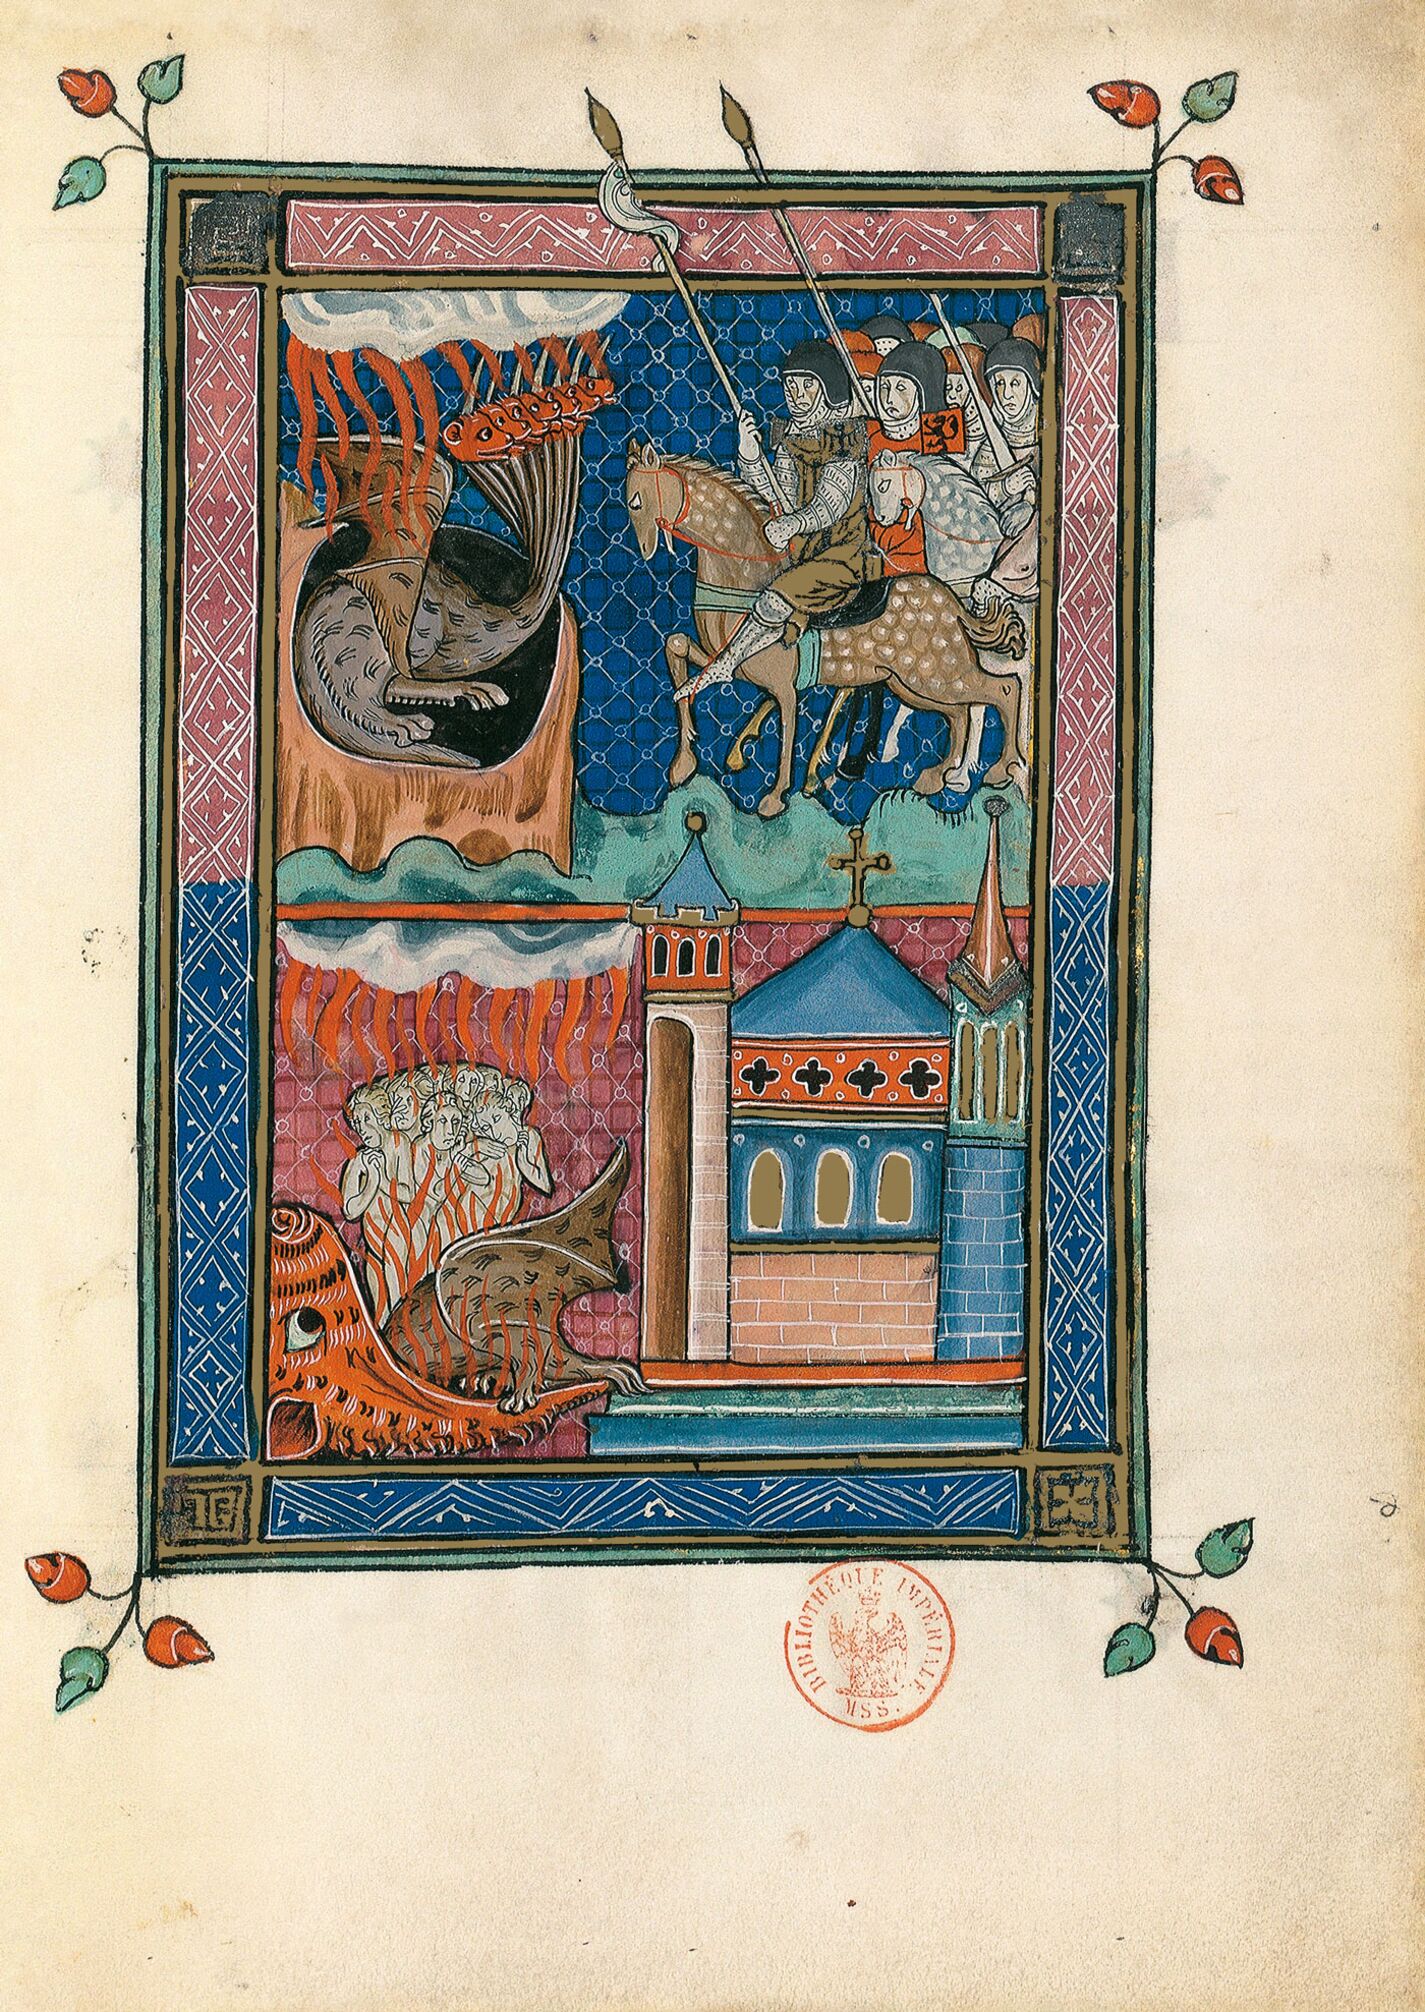 BIBLIOTHÈQUE IMPÉRIALE
MSS.